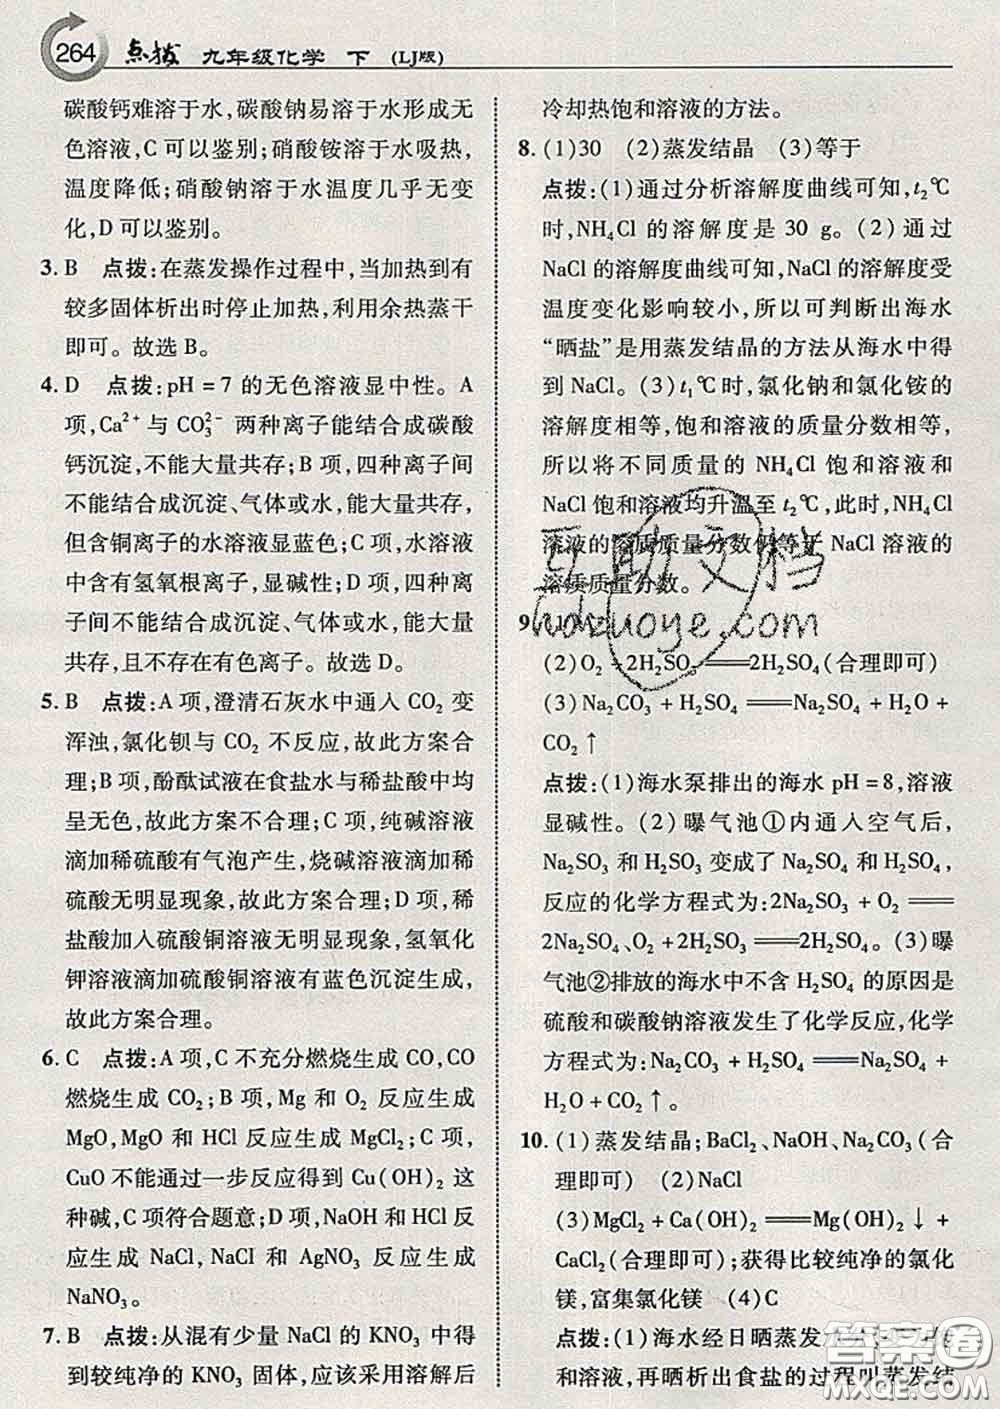 264 点拨 九年级化学 下 (LJ版)
碳酸钙难溶于水,碳酸钠易溶于水形成无
色溶液,C可以鉴别;硝酸铵溶于水吸热,
温度降低;硝酸钠溶于水温度几乎无变
化,D可以鉴别。
3. B 点拨:在蒸发操作过程中,当加热到有
较多固体析出时停止加热,利用余热蒸干
即可。故选B。
4. D 点拨:pH=7的无色溶液显中性。A
项,Ca²⁺与CO₃²⁻两种离子能结合成碳酸
钙沉淀,不能大量共存;B项,四种离子间
不能结合成沉淀、气体或水,能大量共存,
但含铜离子的水溶液显蓝色;C项,水溶液
中含有氢氧根离子,显碱性;D项,四种离
子间不能结合成沉淀、气体或水,能大量
共存,且不存在有色离子。故选D。
5. B 点拨:A项,澄清石灰水中通入CO₂变
浑浊,氯化钡与CO₂不反应,故此方案合
理;B项,酚酞试液在食盐水与稀盐酸中均
呈无色,故此方案不合理;C项,纯碱溶液
滴加稀硫酸有气泡产生,烧碱溶液滴加稀
硫酸无明显现象,故此方案合理;D项,稀
盐酸加入硫酸铜溶液无明显现象,氢氧化
钾溶液滴加硫酸铜溶液有蓝色沉淀生成,
故此方案合理。
6. C 点拨:A项,C不充分燃烧生成CO,CO
燃烧生成CO₂;B项,Mg和O₂反应生成
MgO,MgO和HCl反应生成MgCl₂;C项,
CuO不能通过一步反应得到Cu(OH)₂这
种碱,C项符合题意;D项,NaOH和HCl反
应生成NaCl,NaCl和AgNO₃反应生成
NaNO₃。
7. B 点拨:从混有少量NaCl的KNO₃中得
到较纯净的KNO₃固体,应该采用溶解后
冷却热饱和溶液的方法。
8. (1)30 (2)蒸发结晶 (3)等于
点拨:(1)通过分析溶解度曲线可知,t₂℃
时,NH₄Cl的溶解度是30 g。(2)通过
NaCl的溶解度曲线可知,NaCl的溶解度受
温度变化影响较小,所以可判断出海水
“晒盐”是用蒸发结晶的方法从海水中得
到NaCl。(3)t₁℃时,氯化钠和氯化铵的
溶解度相等,饱和溶液的质量分数相等,
所以将不同质量的NH₄Cl饱和溶液和
NaCl饱和溶液均升温至t₂℃,此时,NH₄Cl
溶液的溶质质量分数仍等于NaCl溶液的
溶质质量分数。
9.
(2)O₂+2H₂SO₃══2H₂SO₄(合理即可)
(3)Na₂CO₃+H₂SO₄══Na₂SO₄+H₂O+
CO₂↑
点拨:(1)海水泵排出的海水pH=8,溶液
显碱性。(2)曝气池①内通入空气后,
Na₂SO₃和H₂SO₃变成了Na₂SO₄和H₂SO₄,
反应的化学方程式为:2Na₂SO₃+O₂══
2Na₂SO₄、O₂+2H₂SO₃══2H₂SO₄。(3)曝
气池②排放的海水中不含H₂SO₄的原因是
硫酸和碳酸钠溶液发生了化学反应,化学
方程式为:Na₂CO₃+H₂SO₄══Na₂SO₄+
H₂O+CO₂↑。
10. (1)蒸发结晶;BaCl₂、NaOH、Na₂CO₃(合
理即可) (2)NaCl
(3)MgCl₂+Ca(OH)₂══Mg(OH)₂↓+
CaCl₂(合理即可);获得比较纯净的氯化
镁,富集氯化镁 (4)C
点拨:(1)海水经日晒蒸发
和溶液,再晒析出食盐的过程叫蒸发结
互助文档
hdzuoye.com
答案圈
MXQE.COM